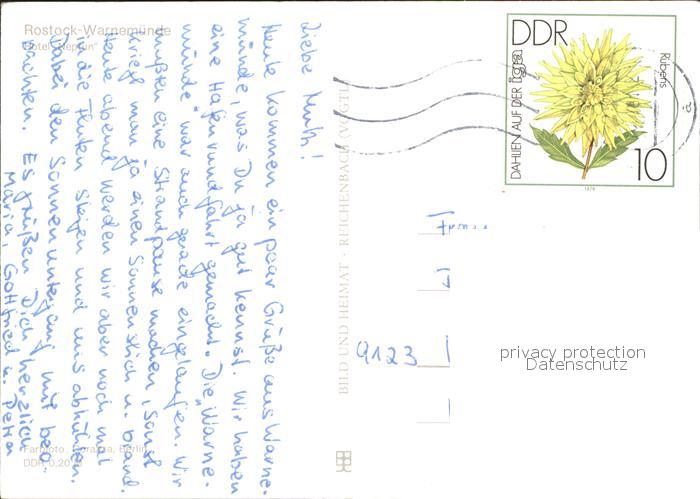 Rostock-Warnemünde
Hotel "Neptun"
Liebe Muth!
Heute kommen ein paar Grüße aus Warne-
münde, was Du ja gut kennst. Wir haben
eine Hafenrundfahrt gemacht. Die „Warne-
münde" war auch gerade eingelaufen. Wir
mußten eine Strandpause machen, sonst
kriegt man ja einen Sonnenstich u. brand.
Heute abend werden wir aber noch mal
in die Fluten steigen und uns abkühlen.
Dabei den Sonnenuntergang mit beo-
bachten. Es grüßen Dich herzlich
Maria, Gottfried u. Petra
Farbfoto: Berlin
DDR 0,20
BILD UND HEIMAT · REICHENBACH (VOGTL
DDR
DAHLIEN AUF DER
Rubens
10
1979
9123
privacy protection
Datenschutz